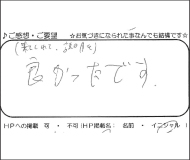 ♪ご感想・ご要望 ☆お気づきになられた事なんでも結構です☆
良かったです。
HPへの掲載 可 ・ 不可 (HP掲載名: 名前 ・ イニシャル)